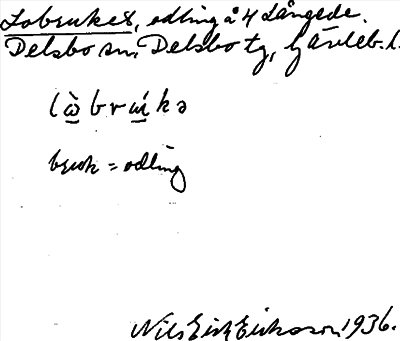 Lobruket, odling å 4 Långede.
Delsbo sn, Delsbo tg, Gävleb. l.
lὼbrẁkə
bruk = odling
Nils Erik Eriksson 1936.